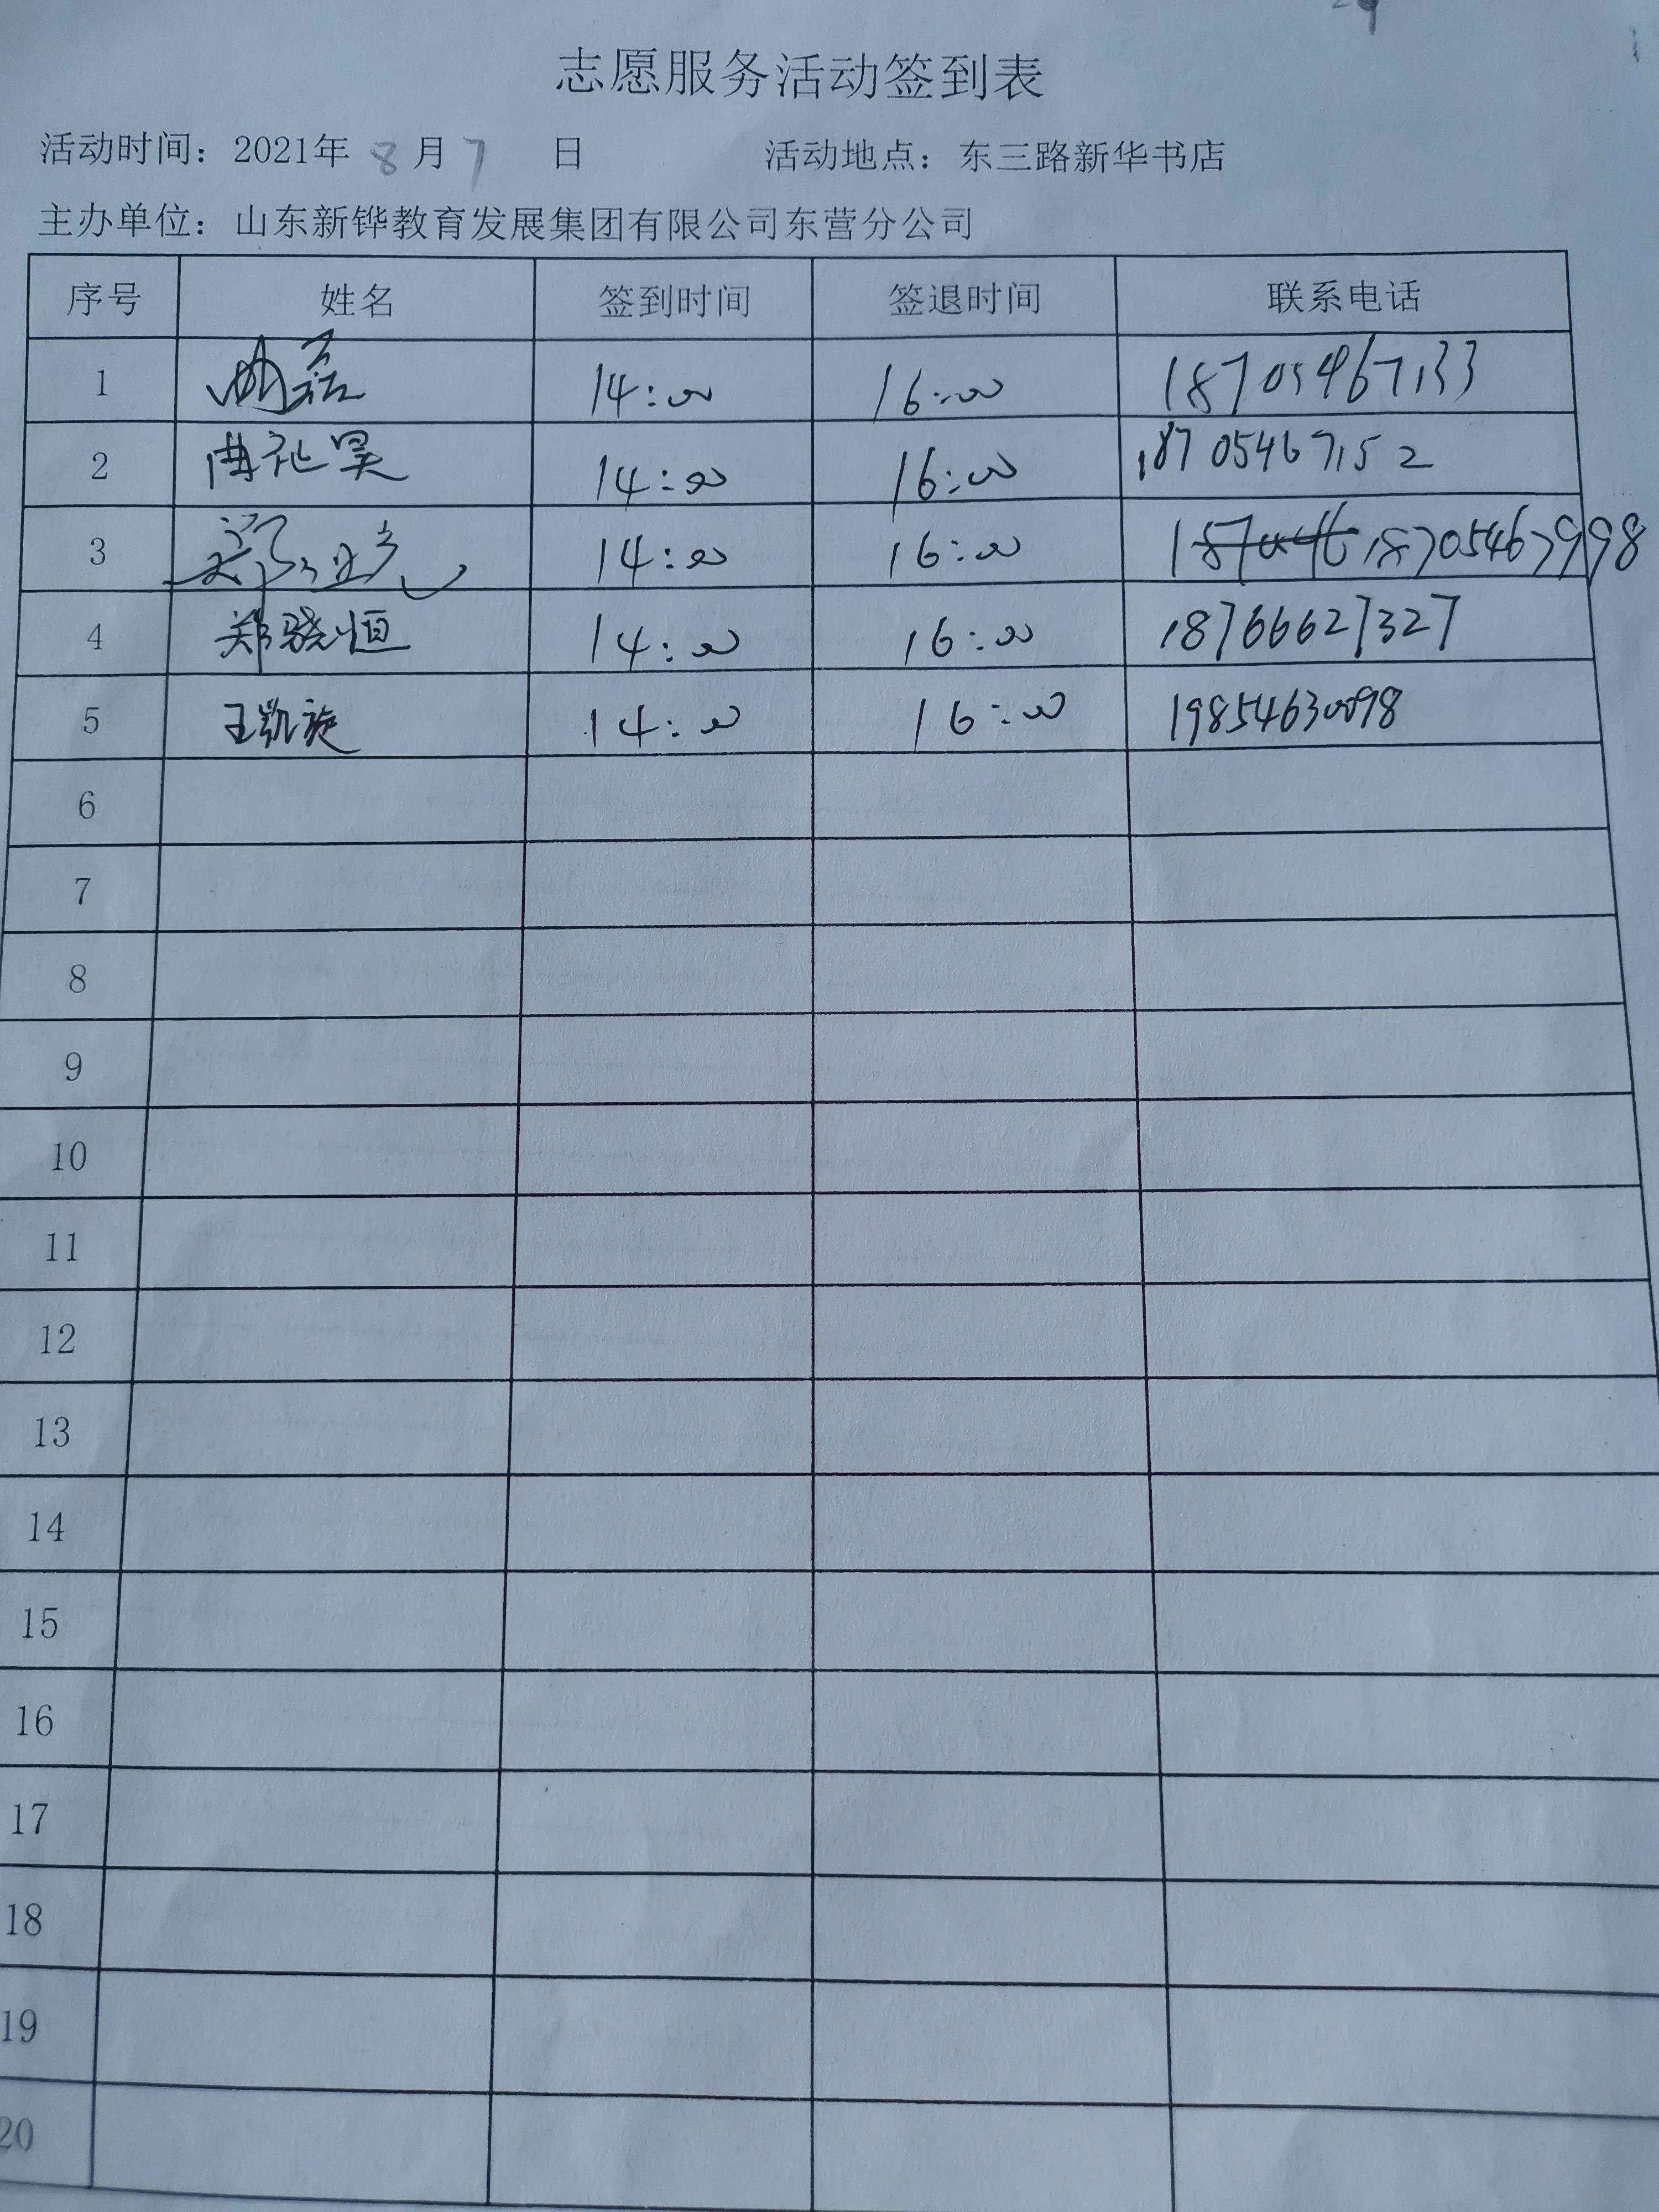 志愿服务活动签到表
活动时间：2021年 8 月 7 日 活动地点：东三路新华书店
主办单位：山东新铧教育发展集团有限公司东营分公司
序号 姓名 签到时间 签退时间 联系电话
1 14:00 16:00 18705467133
2 曲祉昊 14:00 16:00 18705467152
3 14:00 16:00 18705467998
4 郑骁恒 14:00 16:00 18766627327
5 王凯旋 14:00 16:00 19854630098
6
7
8
9
10
11
12
13
14
15
16
17
18
19
20